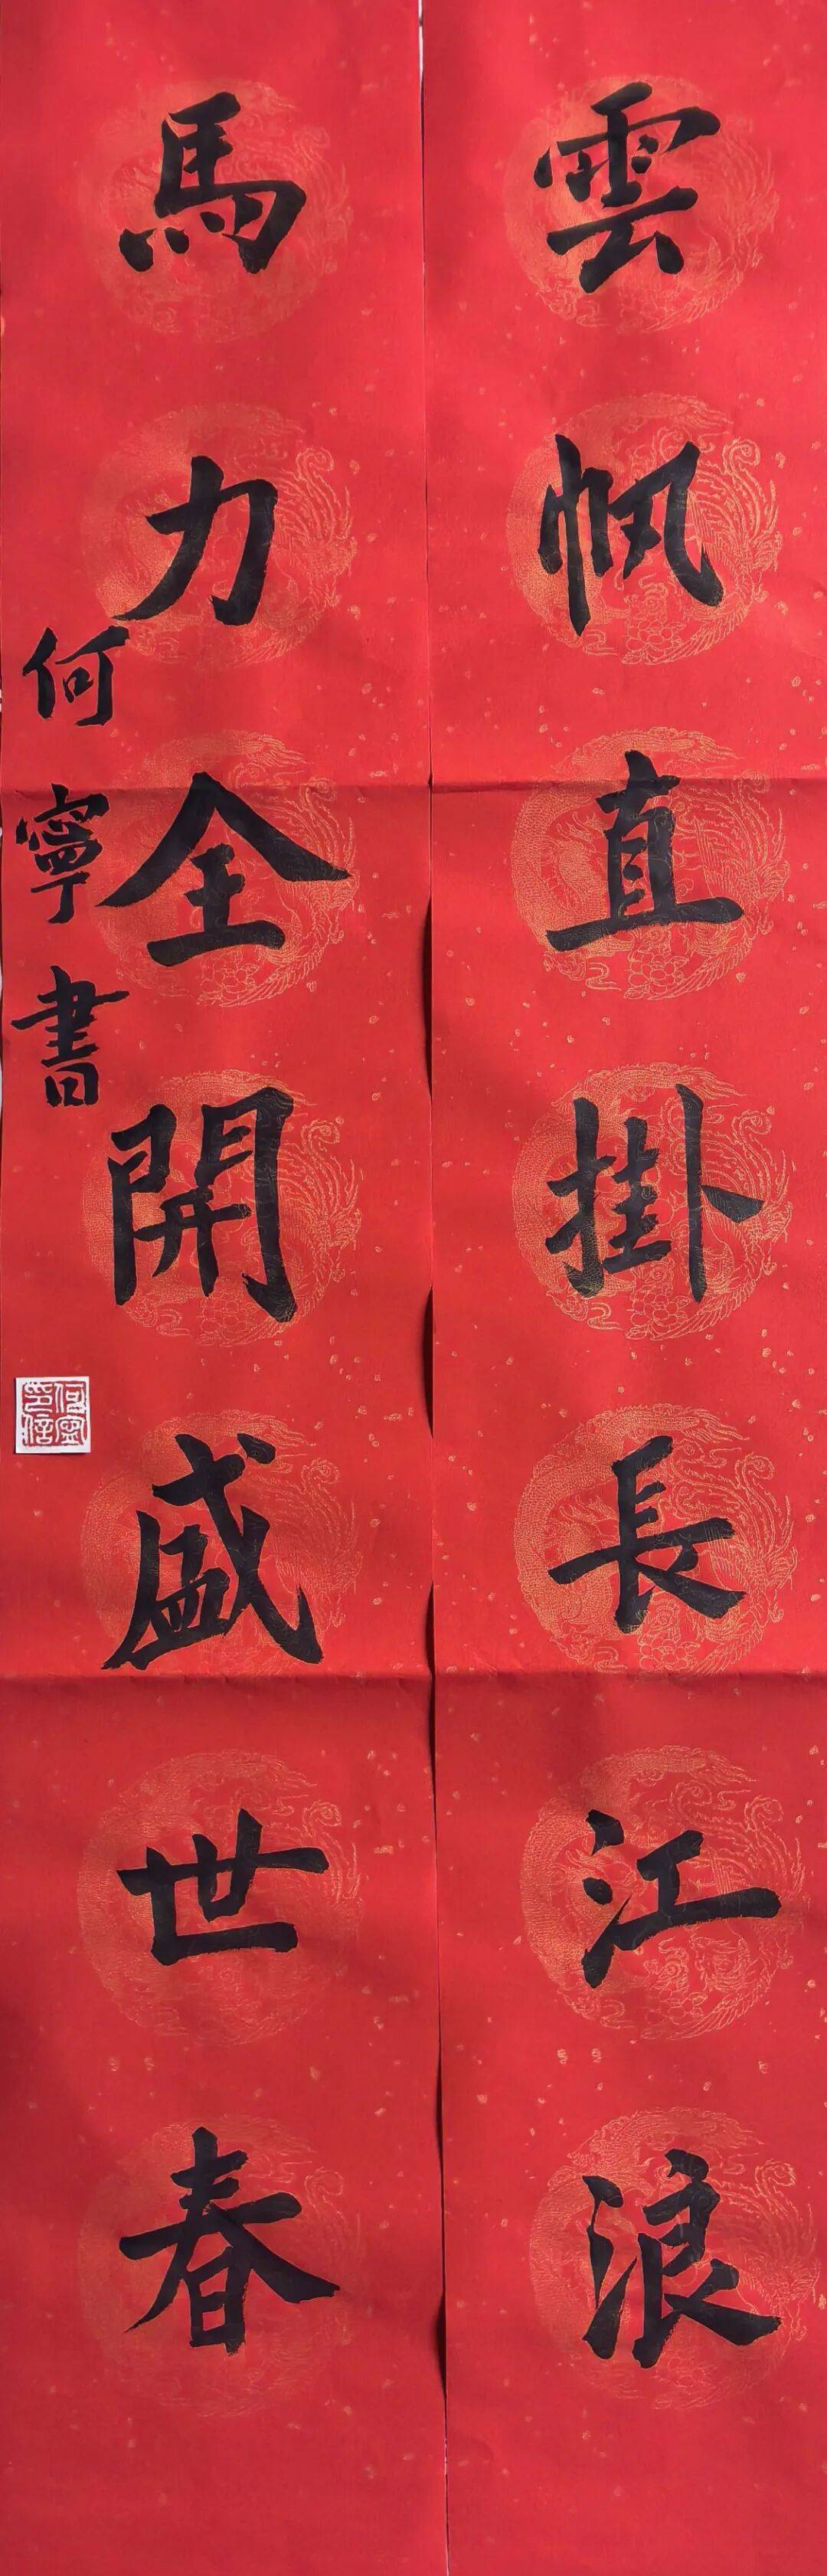 雲帆直掛長江浪
馬力全開盛世春
何寧書
何寧印信